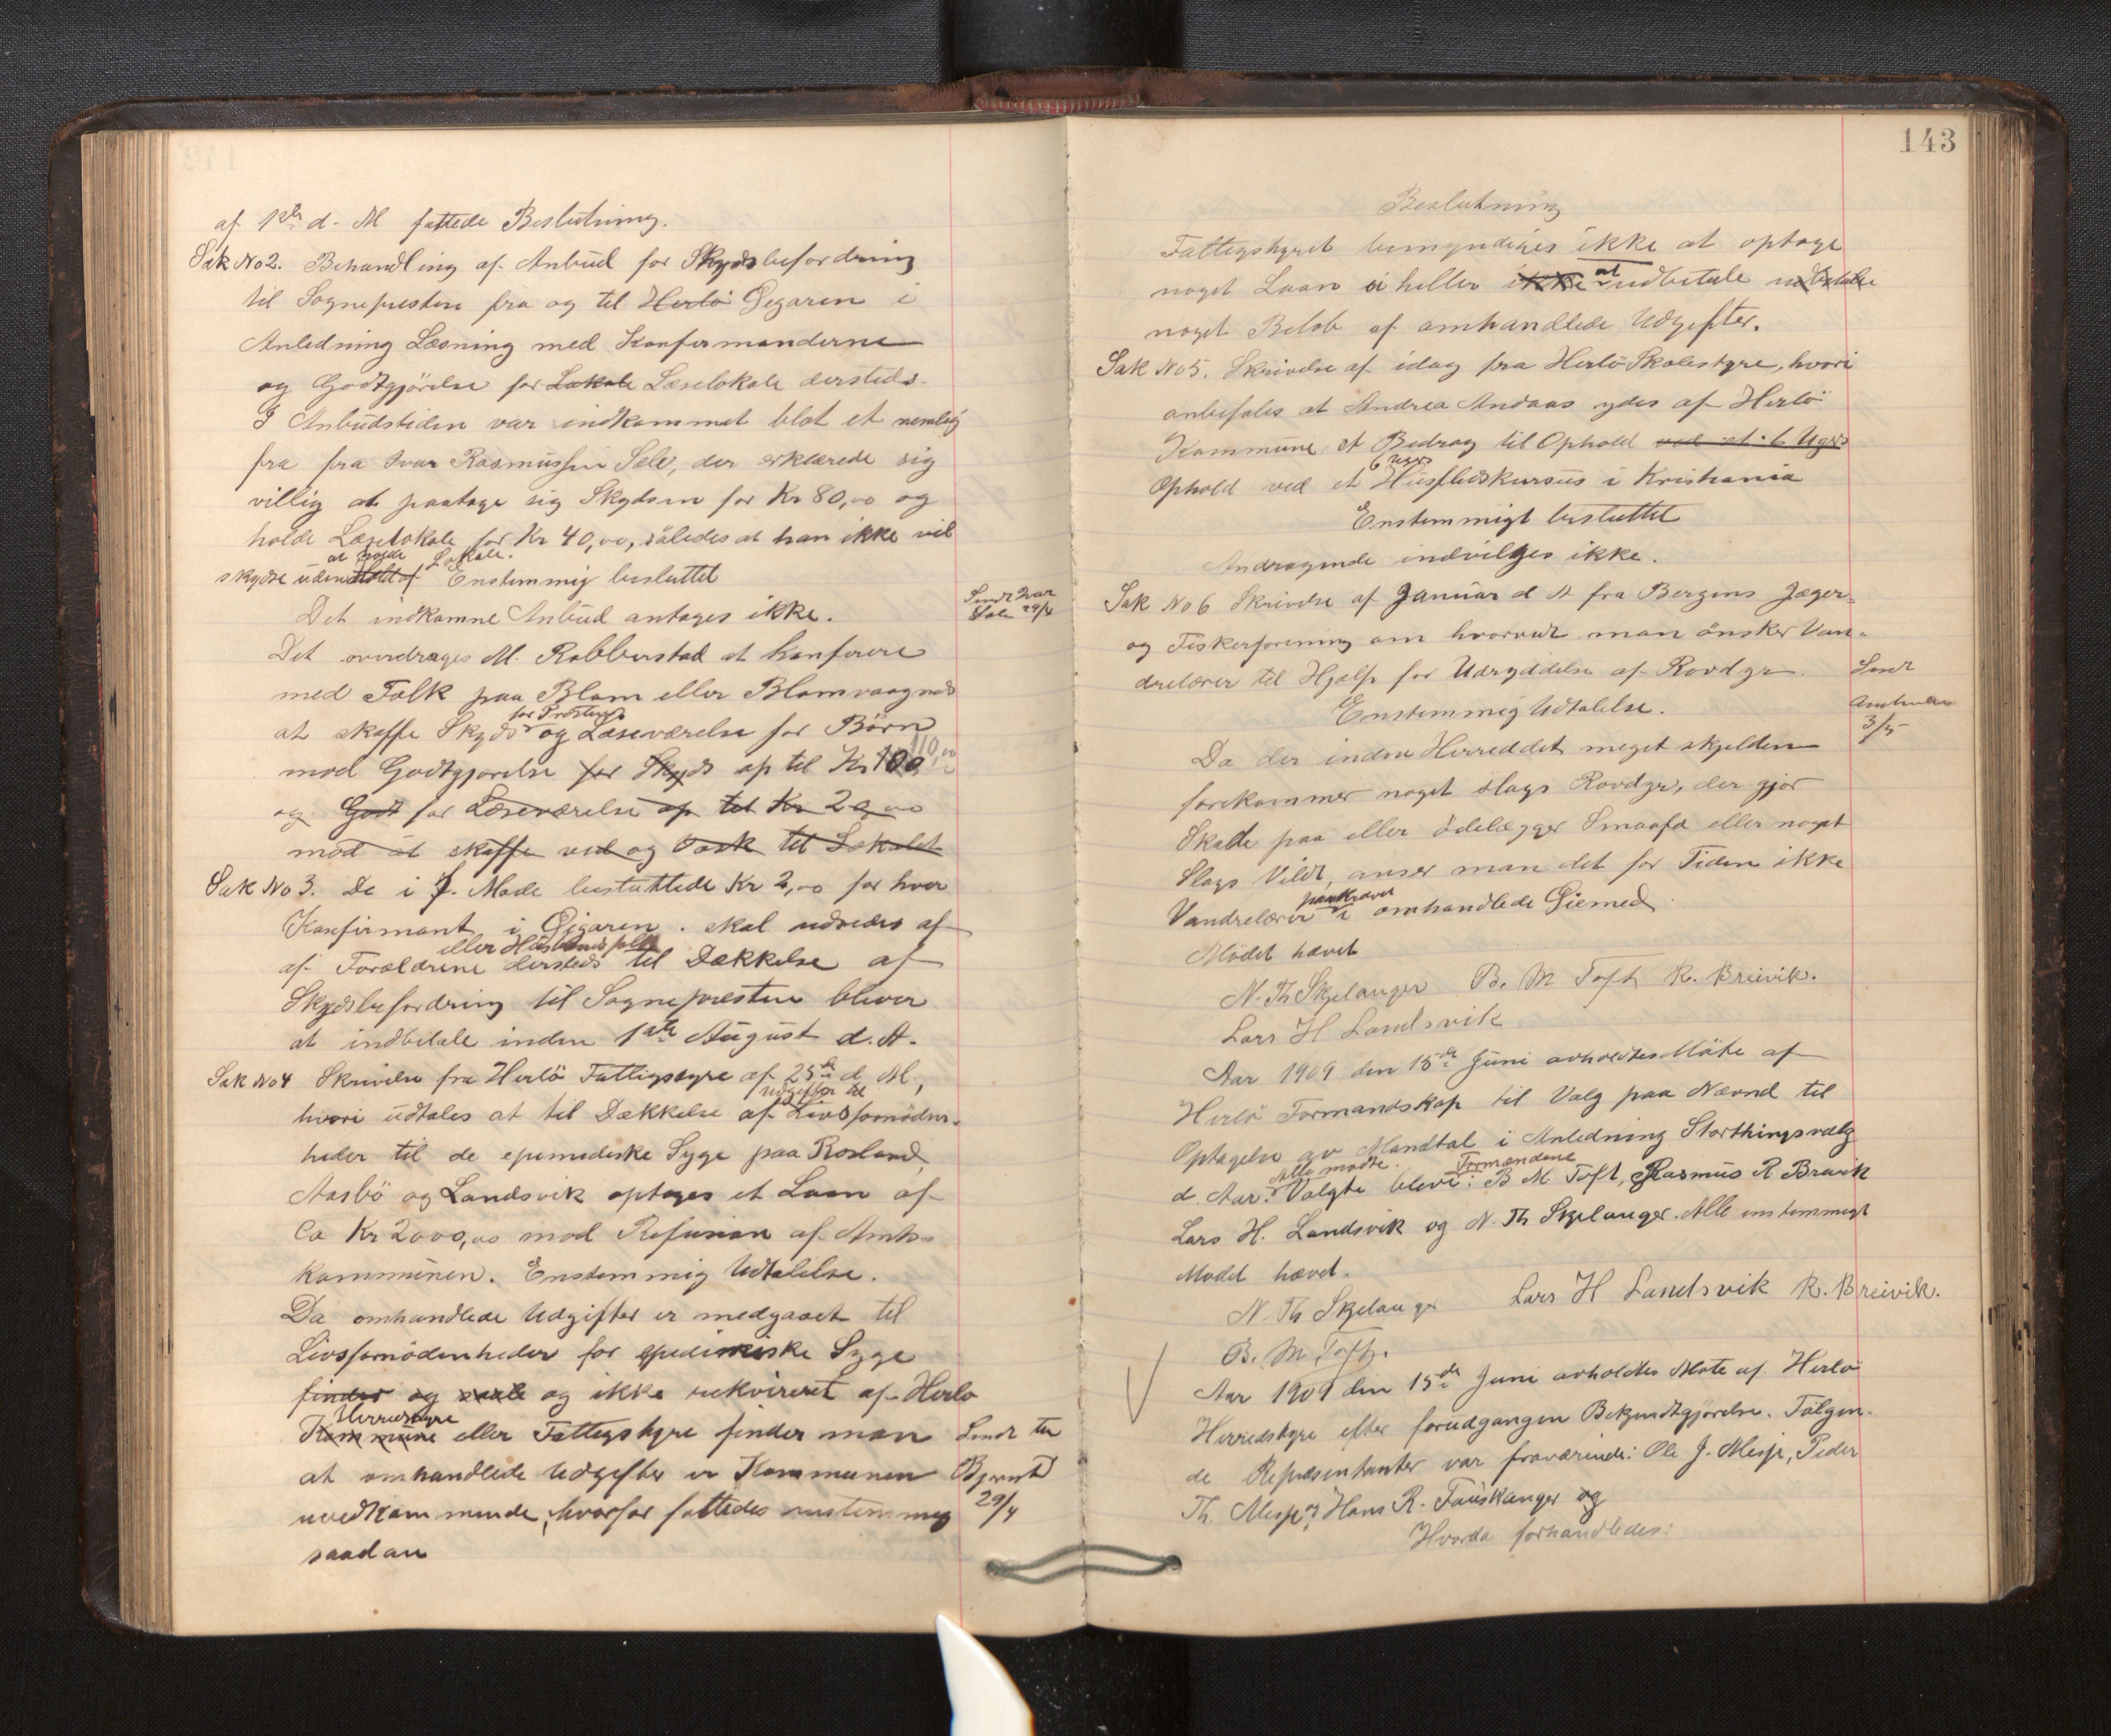 af 1ste d. M fattede Beslutning.
Sak No 2. Behandling af Anbud for Skydsbefordring
til Sognepresten fra og til Herlö Øygaren i
Anledning Læsning med Konfermanderne
og Godtgjörelse for Lokale Læselokale dersteds.
I Anbudstiden var indkommet blot et nemlig
fra fra Ivar Rasmussen Sele, der erklærede sig
villig at paatage sig Skydsen for Kr 80,00 og
holde Læselokale for Kr 40,00, således at han ikke vil
at holde Lokale.
skydse uden Enstemmig besluttet
Det indkomne Anbud antages ikke.
Sendt Ivar
Sele 29/4
Det overdrages M. Rabberstad at konferere
med Folk paa Blom eller Blomvaagnes
for Presten
at skaffe Skyds og Læseværelse for Börn
110,00
mod Godtgjorelse for Skyds op til Kr 100
og Godt for Læseværelse op til Kr 20,00
mod at skaffe ved og Vask til Lokalet
Sak No 3. De i f. Mode besluttede Kr 2,00 for hver
Konfirmant i Øigaren. skal udredes af
eller Husbondsfolk
af Forældrene dersteds til Dækkelse af
Skydsbefordring til Sognepresten bliver
at indbetale inden 1ste August d. A.
Sak No 4 Skrivelse fra Herlö Fattigstyre af 25de d M,
Udgifter til
hvori udtales at til Dækkelse af Livsfornöden-
heder til de epemediske Syge paa Rosland,
Aasbö og Landsvik optages et Laan af
Ca Kr 2000,00 mod Refusion af Amts-
kommunen. Enstemmig Udtalelse.
Da omhandlede Udgifter er medgaaet til
Livsfornödenheder for epedimiske Syge
finder og og ikke rekvireret af Herlo
Herredstyre
Kommune eller Fattigstyre finder man
Sendt til
at omhandlede Udgifter er Kommunen
29/4
uvedkommende, hvorfor fattedes enstemmig
saadan
143
Beslutning
Fattigstyret bemyndiges ikke at optage
at
noget Laan ei heller ikke udbetale udbetale
noget Belöb af omhandlede Udgifter.
Sak No 5. Skrivelse af idag fra Herlö Skolestyre, hvori
anbefales at Andrea Andaas ydes af Herlö
Kommune et Bedrag til Ophold ved et 6 Ugers
6 Ugers
Ophold ved et Husflidskursus i Kristiania
Enstemmigt besluttet
Andragende indvilges ikke.
Sak No 6 Skrivelse af Januar d A fra Bergens Jæger-
og Fiskerforening om hvorvidt man önsker Van-
drelærer til Hjælp for Udryddelse af Rovdyr.
Sendt
Amtmann
3/5
Enstemmig Udtalelse.
Da der inden Herreddet meget skjelden
forekommer noget slags Rovdyr, der gjör
Skade paa eller ödelægger Smaafæ eller noget
Slags Vildt, anser man det for Tiden ikke
paakrævet
Vandrelærer i omhandlede Øiemed.
Mödet hævet
N. Th Skjelanger B. M Toft R. Breivik.
Lars H Landsvik
Aar 1909 den 15de Juni avholdtes Möte af
Herlö Formandskap til Valg paa Nævnd til
Optagelse av Mandtal i Anledning Storthingsvalg
Alle mödte. Formændene
d. Aar. Valgte blev: B M Toft, Rasmus R. Breivik
Lars H. Landsvik og N. Th Skjelanger. Alle enstemmigt
Mödet hævet.
N. Th Skjelanger Lars H Landsvik R. Breivik.
B. M Toft.
Aar 1909 den 15de Juni avholdtes Möte af Herlö
Herredstyre efter forudgangen Bekjendtgjörelse. Fölgen-
de Repræsentanter var fraværende: Ole J. Misje, Peder
Th. Misje og Hans R. Fauskanger og
Hvorda forhandledes: